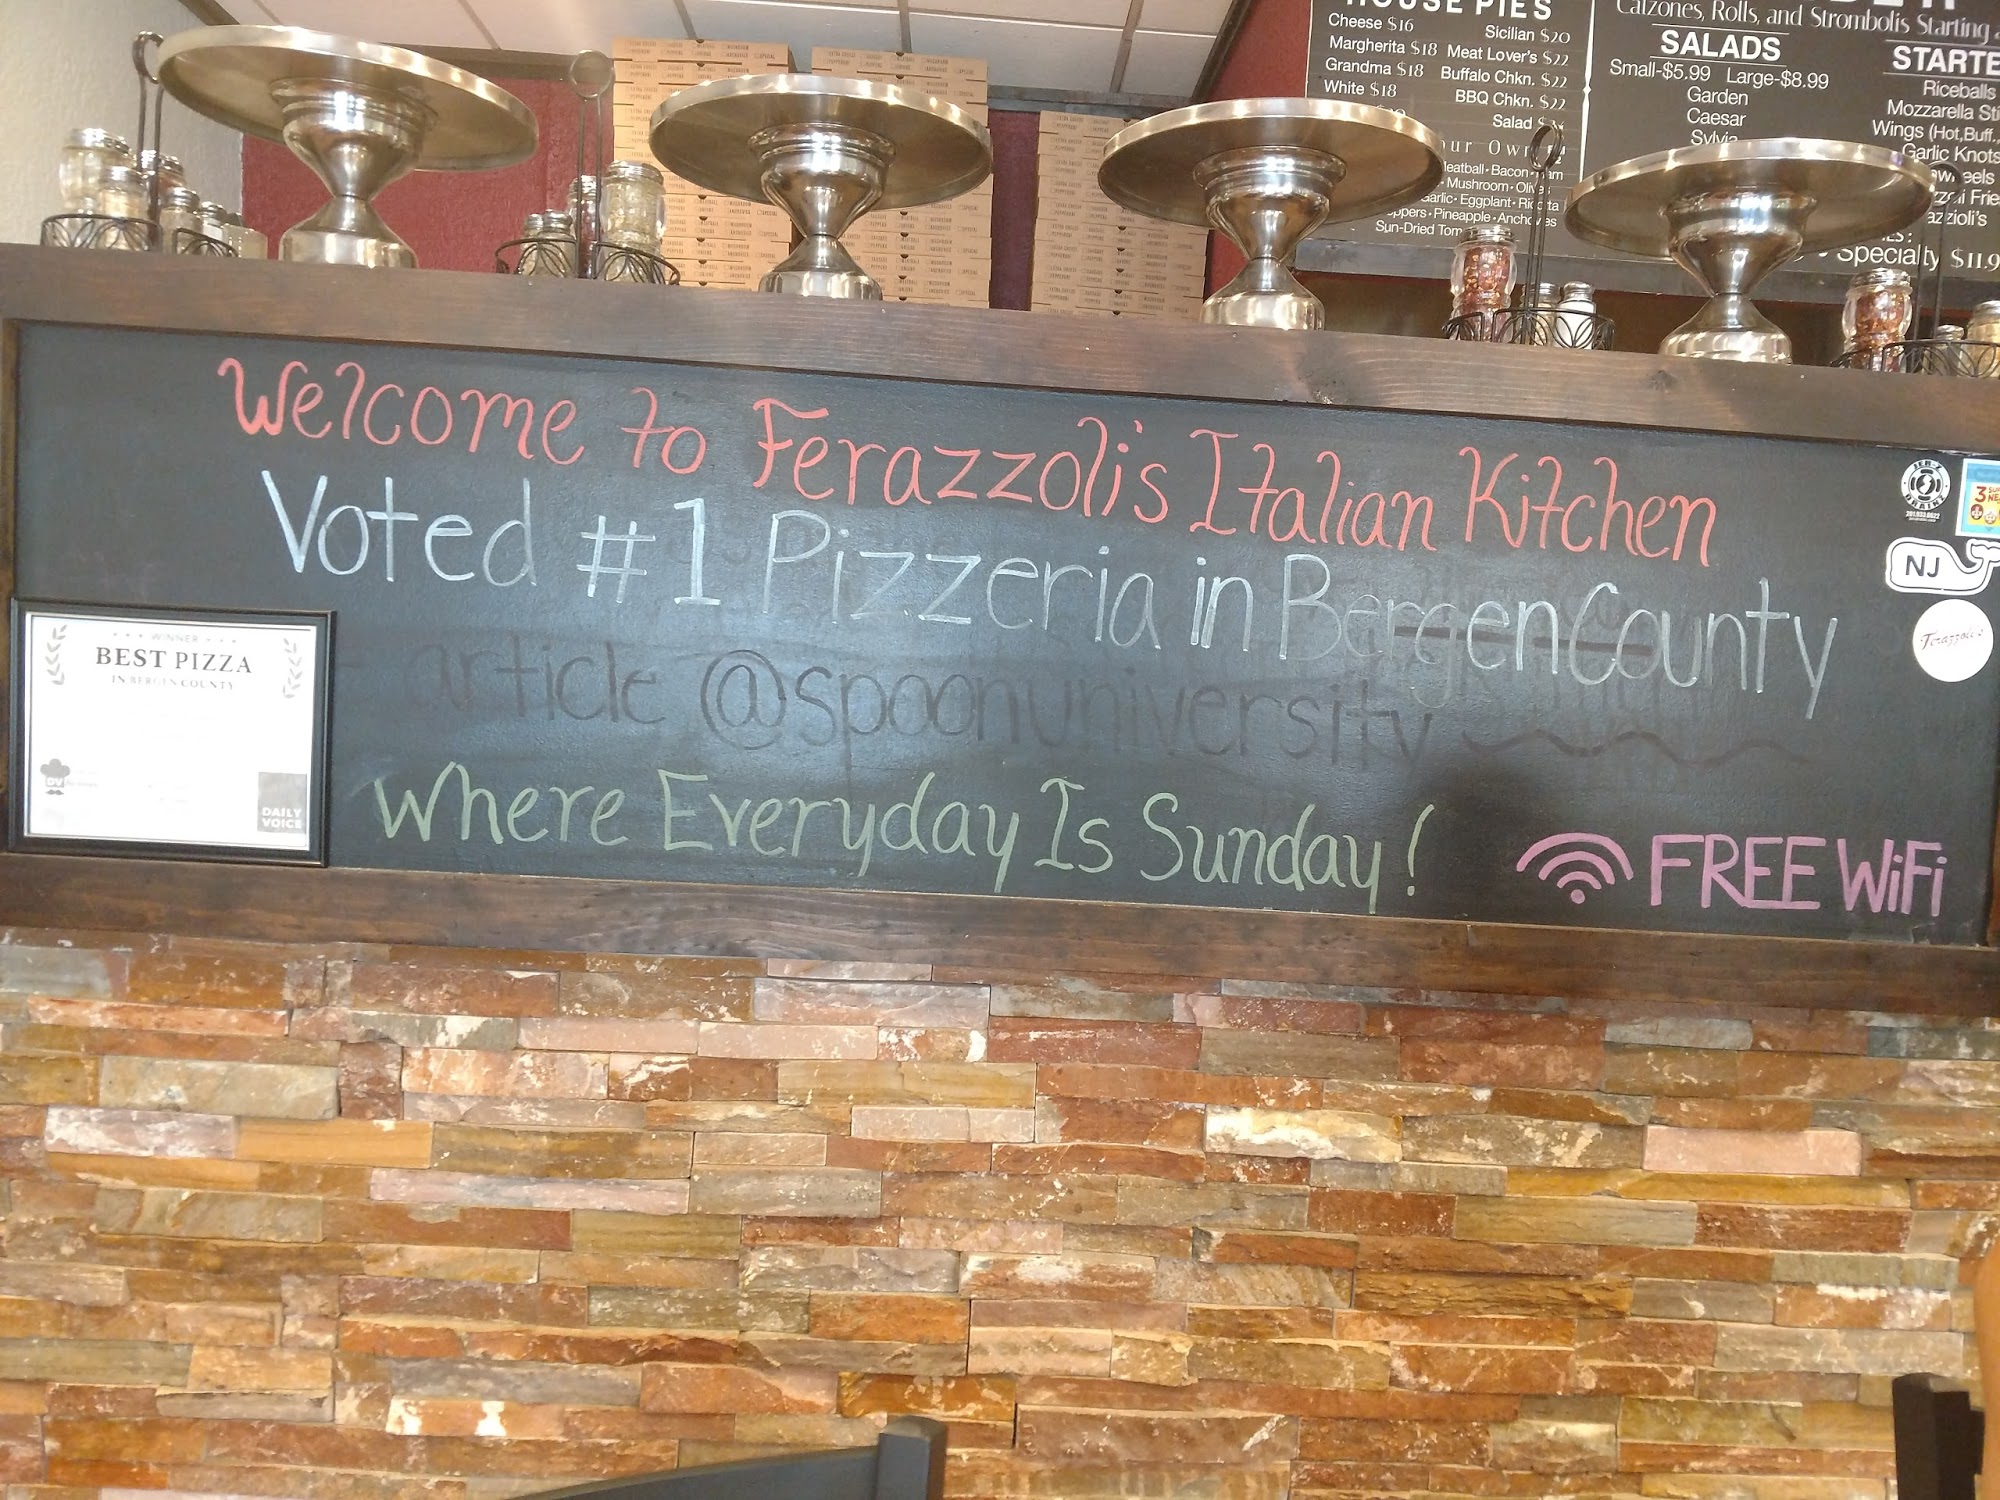 HOUSE PIES
Cheese $16
Margherita $18
Grandma $18
White $18
Sicilian $20
Meat Lover's $22
Buffalo Chkn. $22
BBQ Chkn. $22
Salad
Own
Meatball • Bacon
Mushroom •
Garlic • Eggplant •
Pineapple •
Sun-Dried
Calzones, Rolls, and Strombolis Starting
SALADS
Small-$5.99 Large-$8.99
Garden
Caesar
Sylvia
STARTE
Riceballs
Mozzarella Sti
Wings (Hot, Buff.,
Garlic Knots
Specialty $11.9
Welcome to Ferazzoli's Italian Kitchen
Voted #1 Pizzeria in Bergen County
article @spoonuniversity
Where Everyday Is Sunday!
FREE WiFi
WINNER
BEST PIZZA
IN BERGEN COUNTY
DV
DAILY
VOICE
NJ
Ferazzoli's